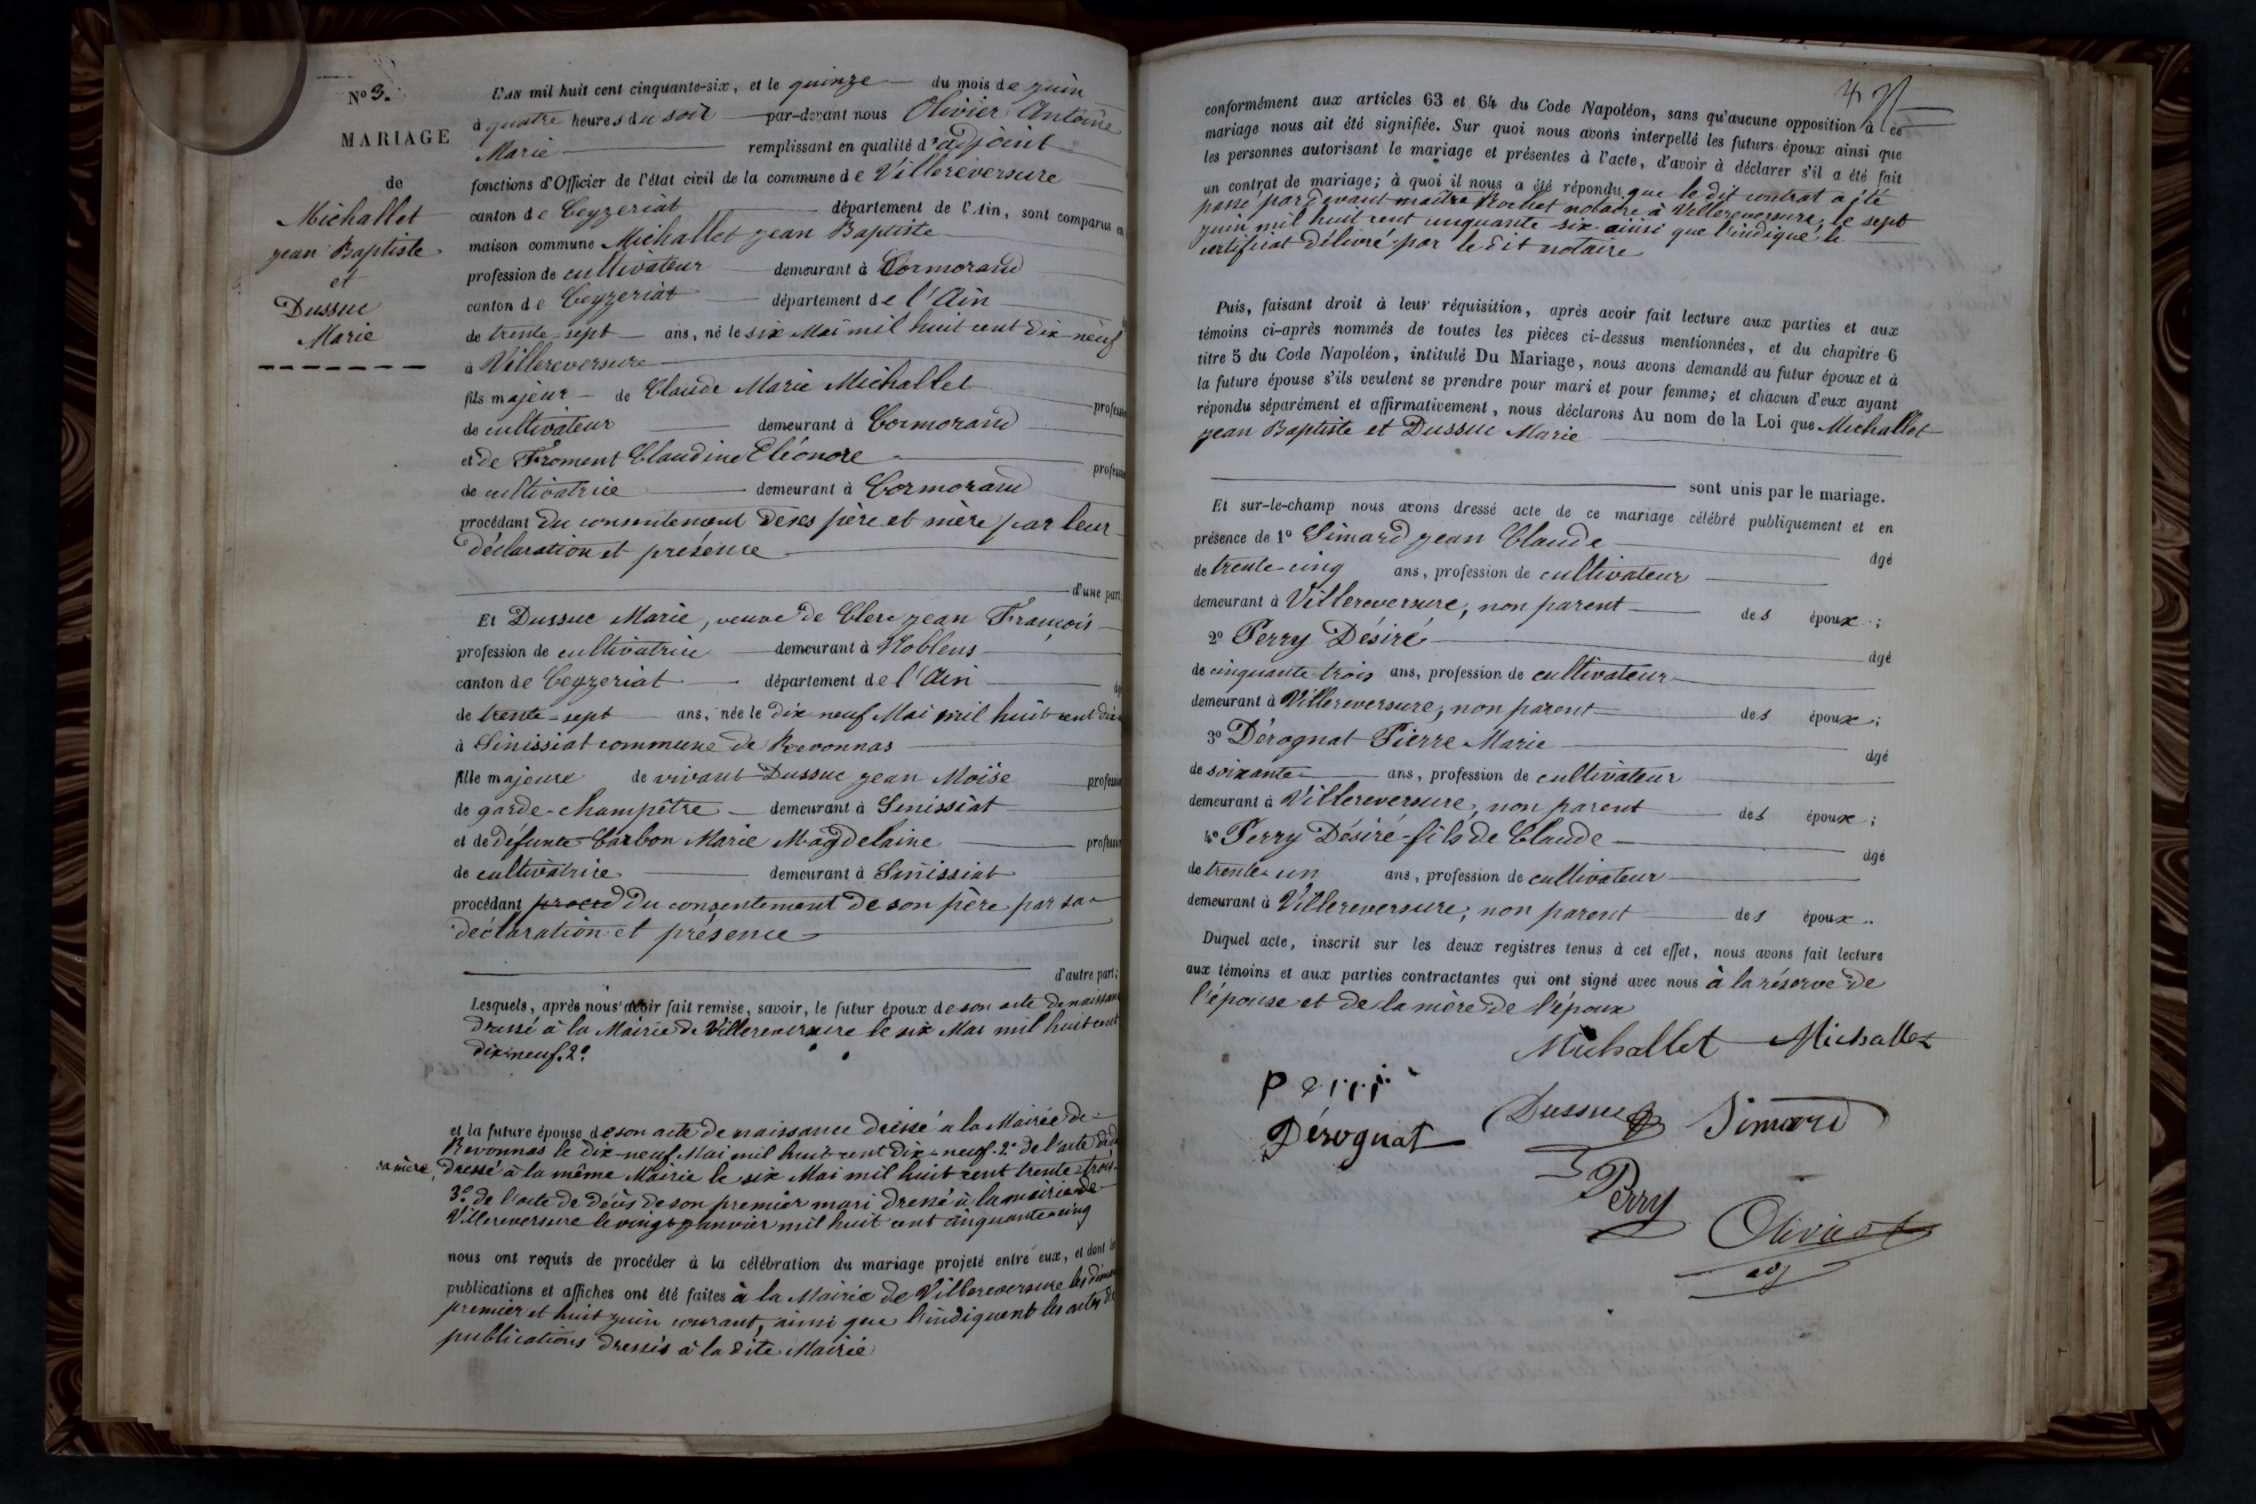 N° 3.
MARIAGE
de
Michallet
jean Baptiste
et
Dussuc
Marie
L'AN mil huit cent cinquante-six, et le quinze du mois de juin
à quatre heures du soir par-devant nous Olivier Antoine
Marie remplissant en qualité d'adjoint
fonctions d'Officier de l'état civil de la commune de Villereversure
canton de Ceyzeriat département de l'Ain, sont comparus en
maison commune Michallet jean Baptiste
profession de cultivateur demeurant à Cormorand
canton de Ceyzeriat département de l'Ain
de trente-sept ans, né le six Mai mil huit cent dix-neuf
à Villereversure
fils majeur de Claude Marie Michallet profession
de cultivateur demeurant à Cormorand
et de Froment Claudine Eléonore profession
de cultivatrice demeurant à Cormorand
procédant du consentement de ses père et mère par leur
déclaration et présence
d'une part,
Et Dussuc Marie, veuve de Clerc jean François
profession de cultivatrice demeurant à Noblens
canton de Ceyzeriat département de l'Ain
de trente-sept ans, née le dix neuf Mai mil huit cent dix
à Sinissiat commune de Revonnas
fille majeure de vivant Dussuc jean Moïse profession
de garde-champêtre demeurant à Sinissiat
et de défunte Carbon Marie Magdelaine profession
de cultivatrice demeurant à Sinissiat
procédant proced du consentement de son père par sa
déclaration et présence
d'autre part;
Lesquels, après nous avoir fait remise, savoir, le futur époux de son acte de naissance
dressé à la Mairie de Villereversure le six Mai mil huit cent
dix-neuf. 2°
et la future épouse de son acte de naissance dressé à la Mairie de
Revonnas le dix-neuf Mai mil huit cent dix-neuf. 2° de l'acte de
sa mère, dressé à la même Mairie le six Mai mil huit cent trente-trois
3° de l'acte de décès de son premier mari dressé à la mairie de
Villereversure le vingt janvier mil huit cent cinquante-cinq
nous ont requis de procéder à la célébration du mariage projeté entre eux, et dont les
publications et affiches ont été faites à la Mairie de Villereversure les
premier et huit juin courant, ainsi que l'indiquent les actes de
publications dressés à la dite Mairie
conformément aux articles 63 et 64 du Code Napoléon, sans qu'aucune opposition à ce
mariage nous ait été signifiée. Sur quoi nous avons interpellé les futurs époux ainsi que
les personnes autorisant le mariage et présentes à l'acte, d'avoir à déclarer s'il a été fait
un contrat de mariage; à quoi il nous a été répondu que le dit contrat a été
passé par devant maître Rochet notaire à Villereversure, le sept
juin mil huit cent cinquante-six ainsi que l'indique le
certificat délivré par le dit notaire
Puis, faisant droit à leur réquisition, après avoir fait lecture aux parties et aux
témoins ci-après nommés de toutes les pièces ci-dessus mentionnées, et du chapitre 6
titre 5 du Code Napoléon, intitulé Du Mariage, nous avons demandé au futur époux et à
la future épouse s'ils veulent se prendre pour mari et pour femme; et chacun d'eux ayant
répondu séparément et affirmativement, nous déclarons Au nom de la Loi que Michallet
jean Baptiste et Dussuc Marie
sont unis par le mariage.
Et sur-le-champ nous avons dressé acte de ce mariage célébré publiquement et en
présence de 1° Simard jean Claude âgé
de trente-cinq ans, profession de cultivateur
demeurant à Villereversure, non parent des époux;
2° Perry Désiré âgé
de cinquante trois ans, profession de cultivateur
demeurant à Villereversure, non parent des époux;
3° Dérognat Pierre Marie âgé
de soixante ans, profession de cultivateur
demeurant à Villereversure, non parent des époux;
4° Perry Désiré fils de Claude âgé
de trente-un ans, profession de cultivateur
demeurant à Villereversure, non parent des époux.
Duquel acte, inscrit sur les deux registres tenus à cet effet, nous avons fait lecture
aux témoins et aux parties contractantes qui ont signé avec nous à la réserve de
l'épouse et de la mère de l'époux
Michallet Michallet
Perri
Dussuc Simard
Dérognat
Perry
Olivier
adj